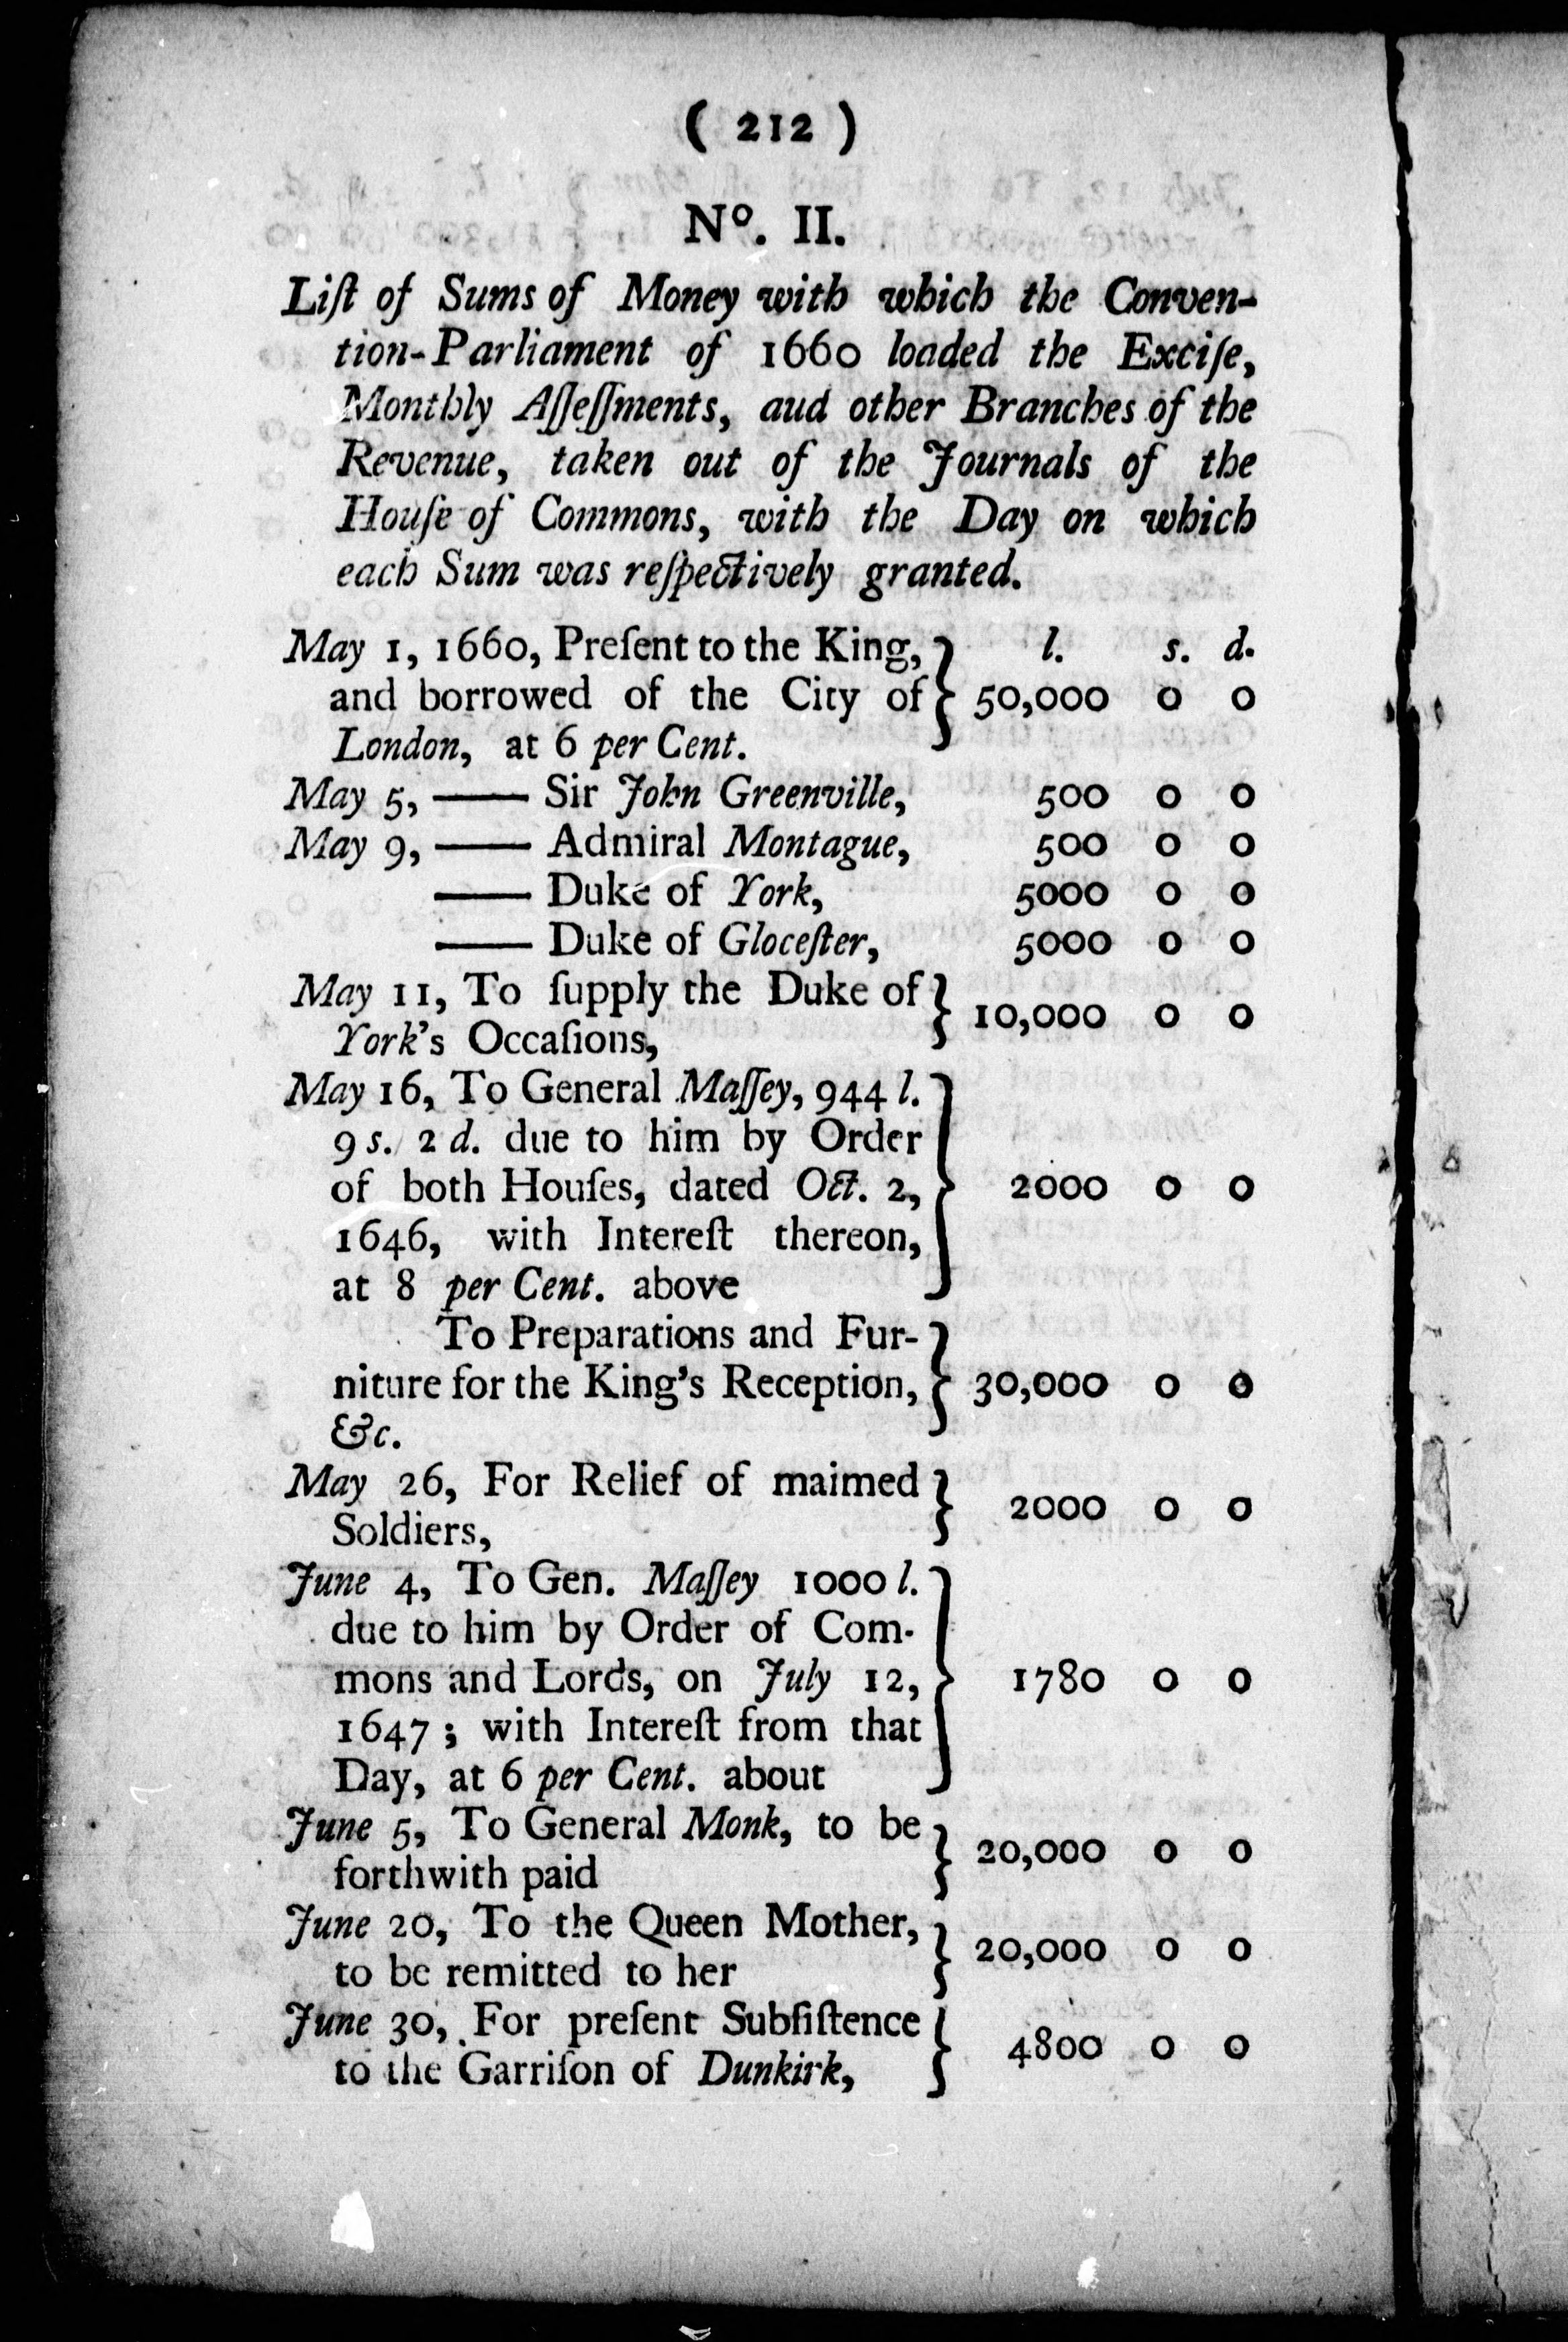 ( 212 )
Nº. II.
Liſt of Sums of Money with which the Conven-
tion-Parliament of 1660 loaded the Exciſe,
Monthly Aſſeſſments, aud other Branches of the
Revenue, taken out of the Journals of the
Houſe of Commons, with the Day on which
each Sum was reſpectively granted.
May 1, 1660, Preſent to the King, } l. s. d.
and borrowed of the City of } 50,000 0 0
London, at 6 per Cent.
May 5, —— Sir John Greenville, 500 0 0
May 9, —— Admiral Montague, 500 0 0
—— Duke of York, 5000 0 0
—— Duke of Gloceſter, 5000 0 0
May 11, To ſupply the Duke of } 10,000 0 0
York's Occaſions,
May 16, To General Maſſey, 944 l.
9 s. 2 d. due to him by Order
of both Houſes, dated Oct. 2, } 2000 0 0
1646, with Intereſt thereon,
at 8 per Cent. above
To Preparations and Fur-
niture for the King's Reception, } 30,000 0 0
&c.
May 26, For Relief of maimed } 2000 0 0
Soldiers,
June 4, To Gen. Maſſey 1000 l.
due to him by Order of Com-
mons and Lords, on July 12, } 1780 0 0
1647; with Intereſt from that
Day, at 6 per Cent. about
June 5, To General Monk, to be } 20,000 0 0
forthwith paid
June 20, To the Queen Mother, } 20,000 0 0
to be remitted to her
June 30, For preſent Subſiſtence } 4800 0 0
to the Garriſon of Dunkirk,